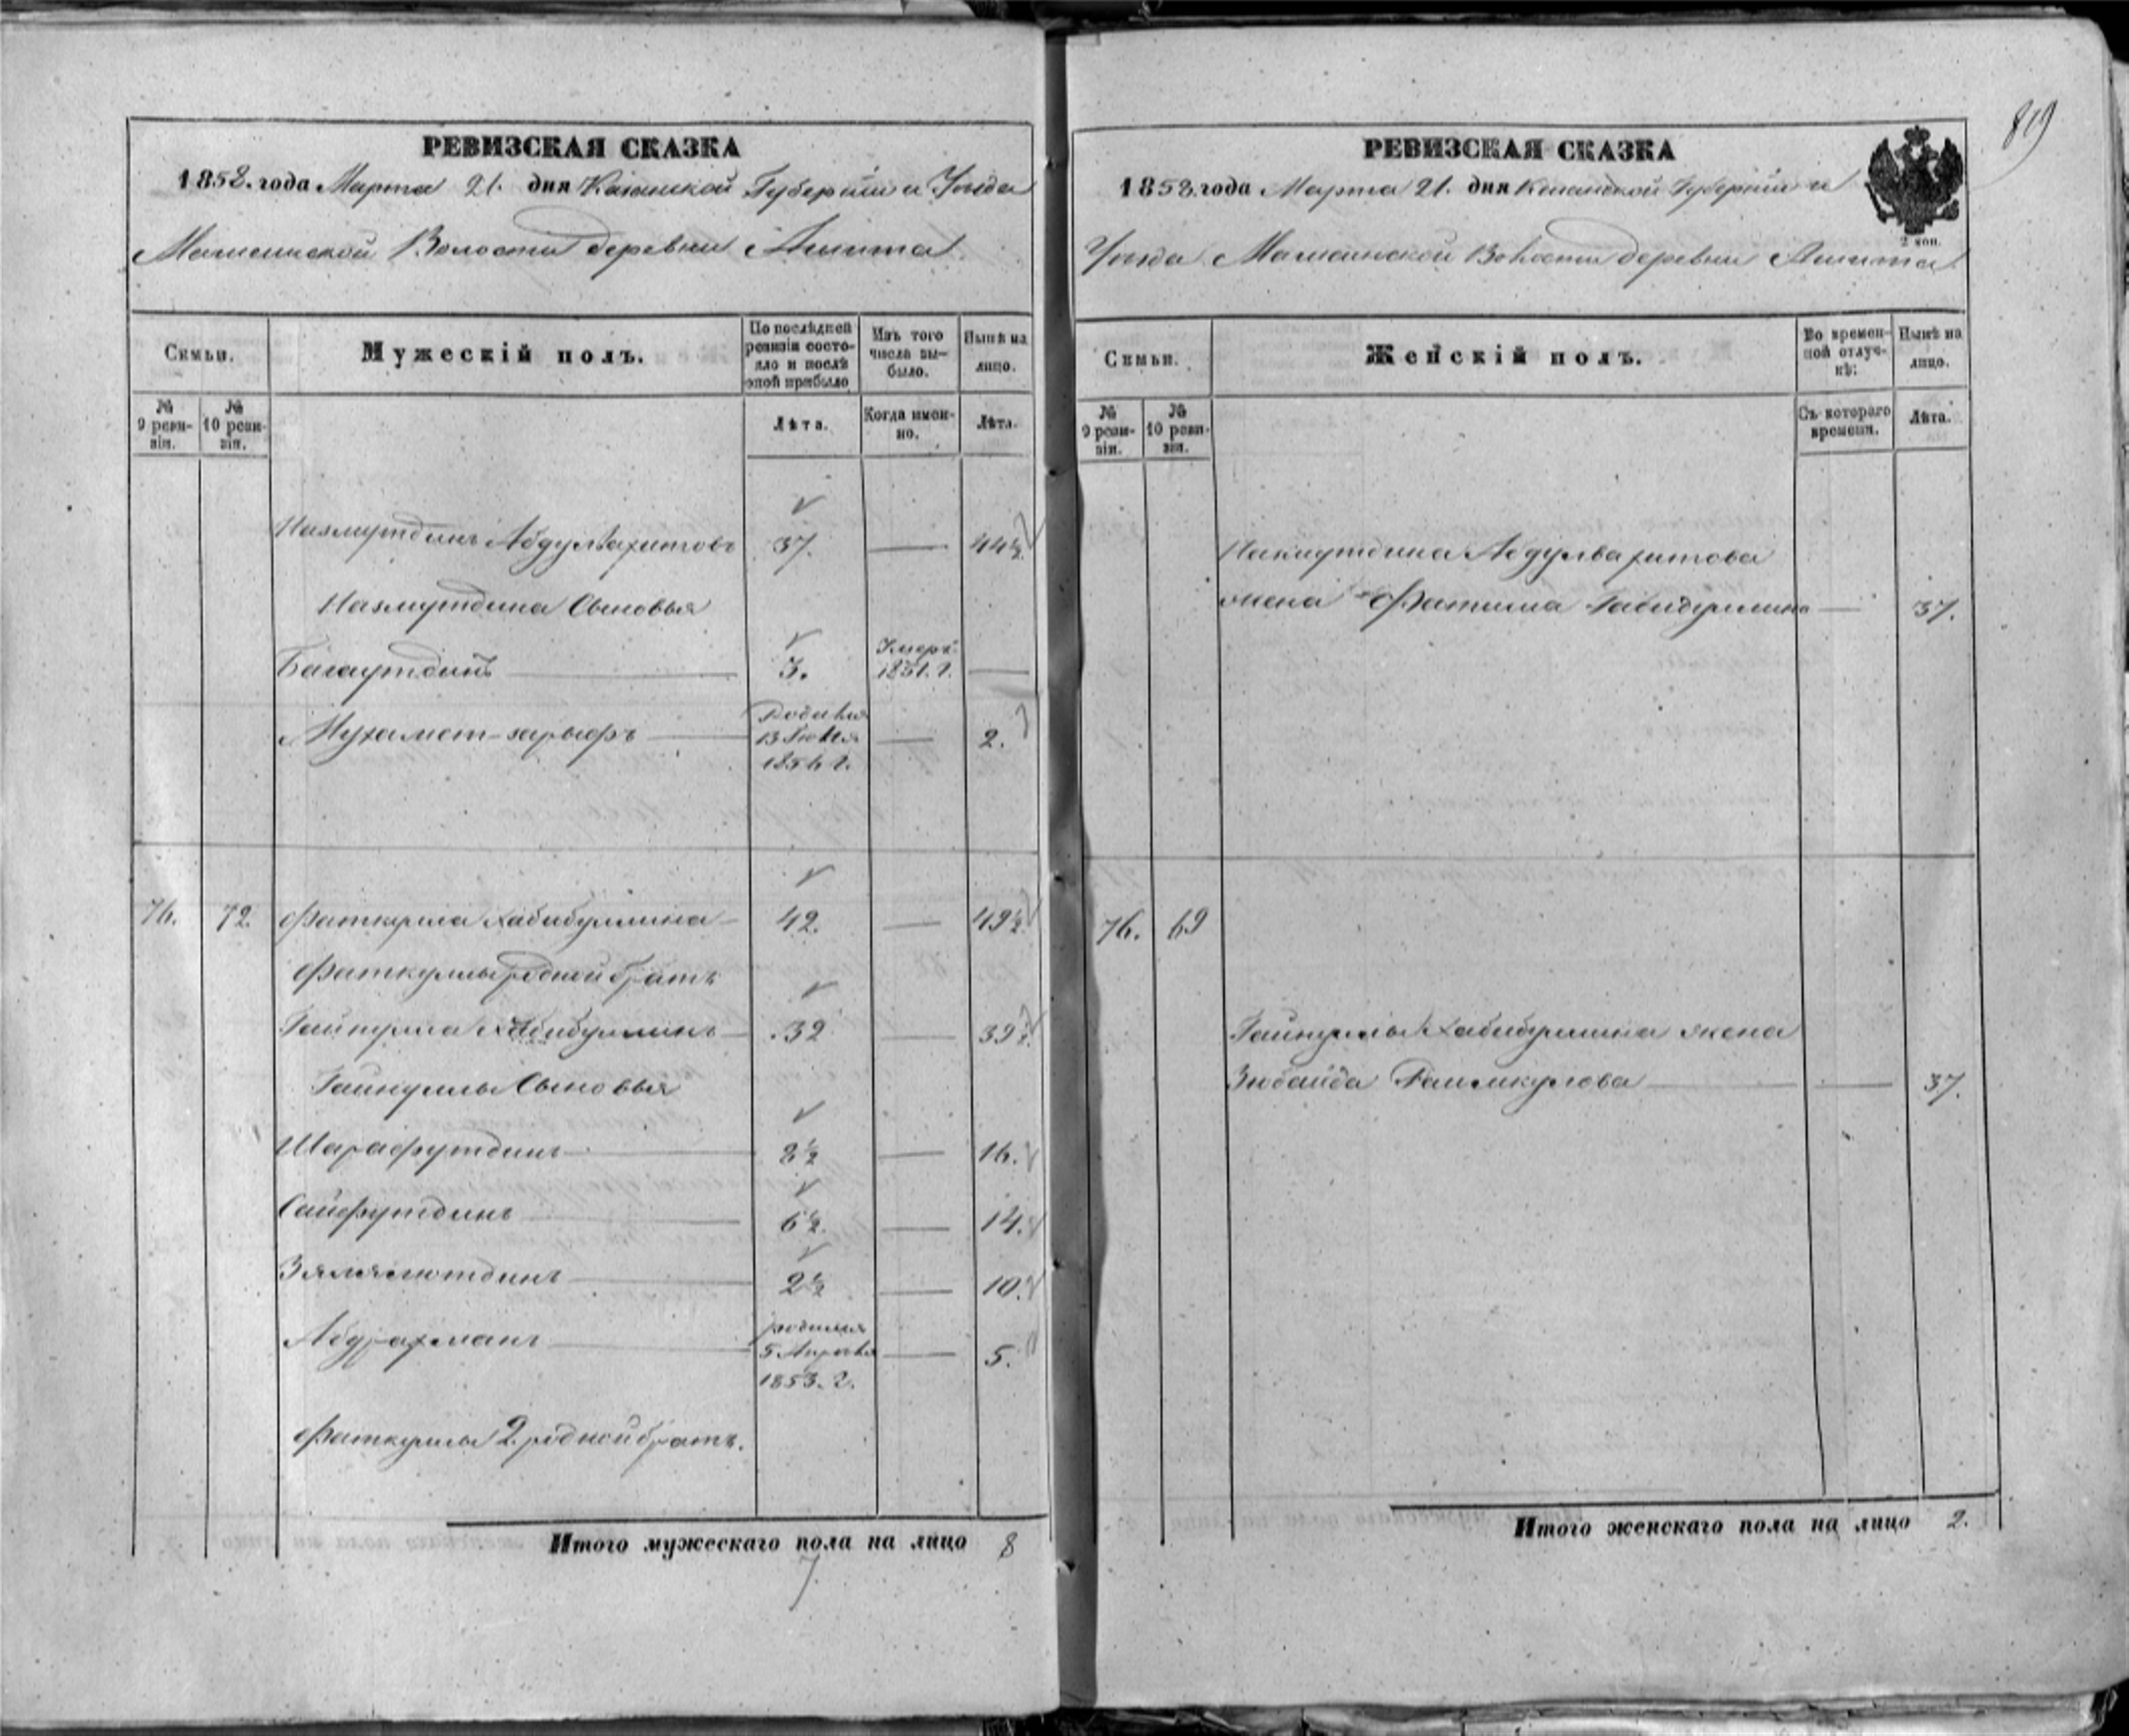 819
РЕВИЗСКАЯ СКАЗКА
1858. года Марта 21. дня Казанской Губерніи и Уезда
Волости деревни Ашита
Семьи.
Мужескій полъ.
По послѣдней ревизіи состояло и послѣ оной прибыло
Изъ того числа выбыло.
Нынѣ на лицо.
№ 9 ревизіи.
№ 10 ревизіи.
Лѣта.
Когда именно.
Лѣта.
Назмутдинъ Абдулвахитовъ 37. — 44½
Назмутдина Сыновья
Багаутдинъ — 3. Умеръ 1851. г. —
Мухамет-зарыфъ — Родился 13 Іюня 1856 г. — 2.
76. 72. Фаткулла Хабибуллина — 42. — 49½
Фаткуллы родной братъ
Гайнулла Хабибуллинъ — 32 — 39½
Гайнуллы Сыновья
Шарафутдинъ — 8½ — 16.
Сайфутдинъ — 6½. — 14.
Зялялютдинъ — 2½ — 10.
Абдрахманъ — родился 5 Апреля 1853. г. — 5.
Фаткуллы 2. родной братъ.
Итого мужескаго пола на лицо 8
7
РЕВИЗСКАЯ СКАЗКА
1858. года Марта 21. дня Казанской Губерніи и
2 коп.
Уезда Волости деревни Ашита
Семьи.
Женскій полъ.
Во временной отлучкѣ:
Нынѣ на лицо.
№ 9 ревизіи.
№ 10 ревизіи.
Съ котораго времени.
Лѣта.
Абдулвахитова
жена Фатима — 37.
76. 69
Гайнуллы Хабибуллина жена
Зюбайда — — 37.
Итого женскаго пола на лицо 2.